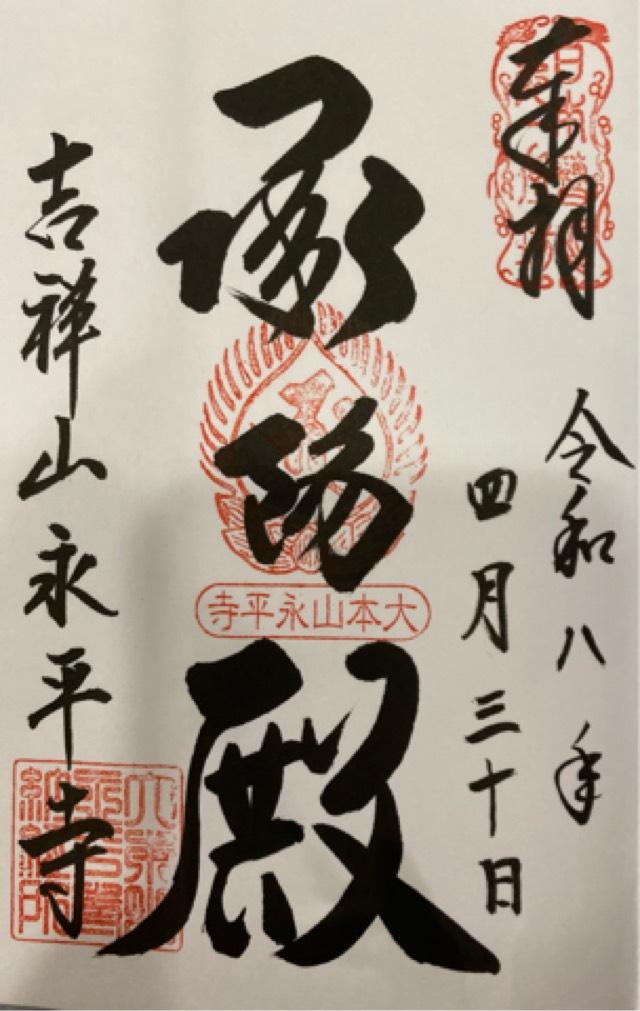 奉拝
令和八年
四月三十日
承陽殿
大本山永平寺
吉祥山永平寺